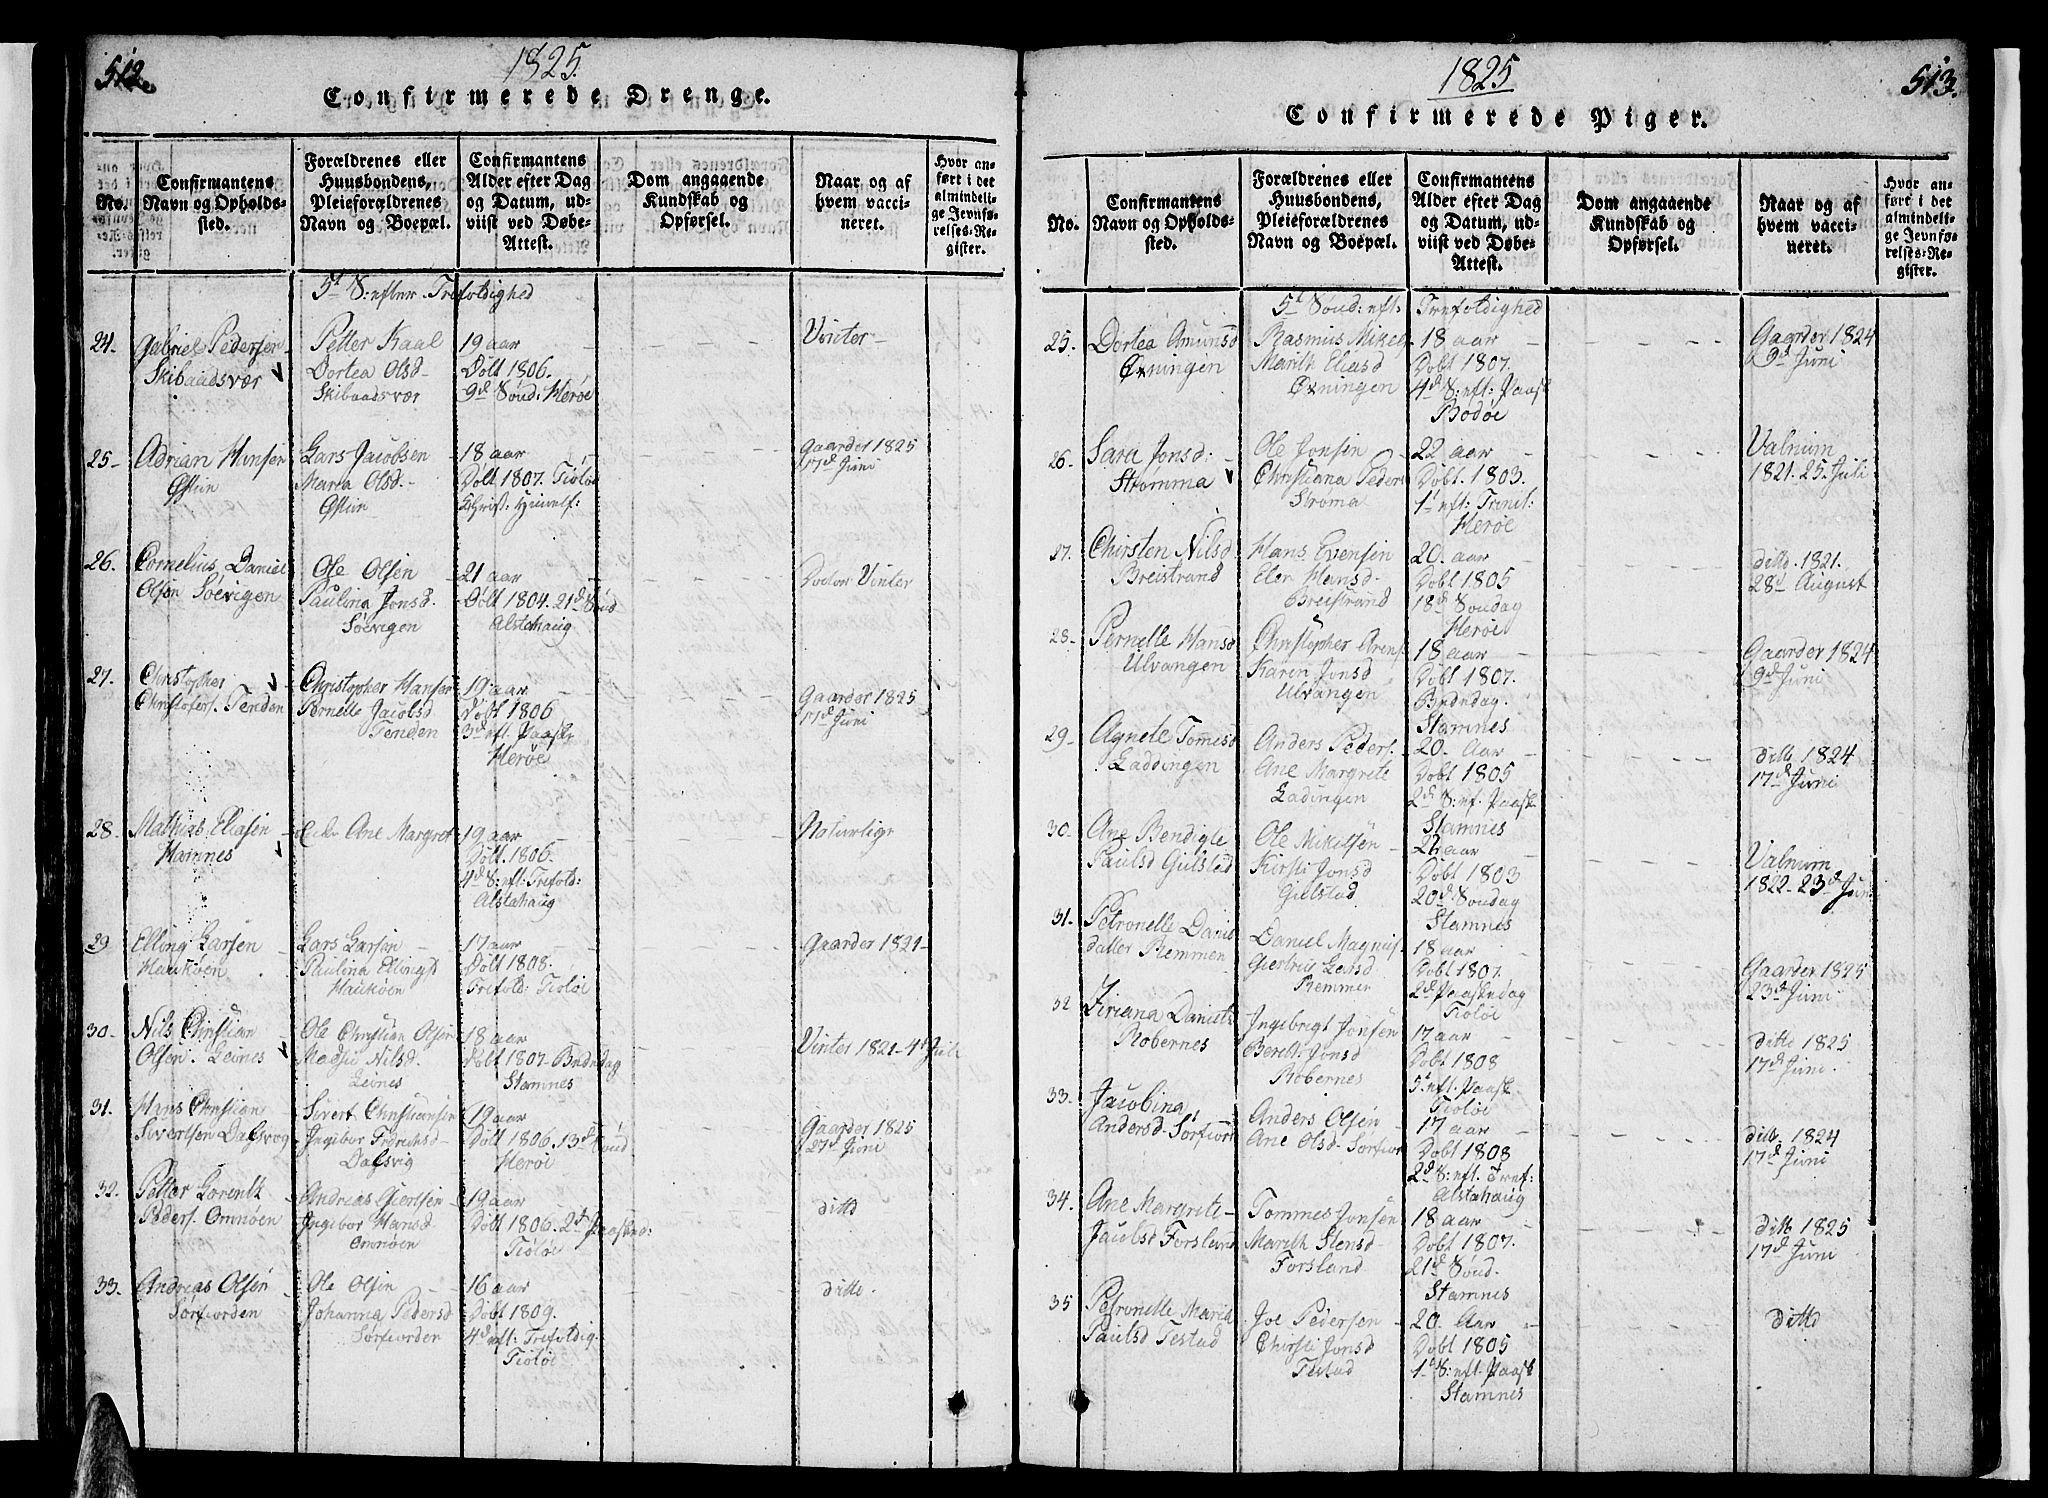 512.
1825.
Confirmerede Drenge.
No.
Confirmantens Navn og Opholds-sted.
Forældrenes eller Huusbondens, Pleieforældrenes Navn og Boepæl.
Confirmantens Alder efter Dag og Datum, ud-viist ved Døbe-Attest.
Dom angaaende Kundskab og Opførsel.
Naar og af hvem vacci-neret.
Hvor an-ført i det almindeli-ge Jevnfø-relses-Re-gister.
5t S: efter Trefoldighed
24. Gabriel Pedersen
Skibaadsvær
Petter Kaal
Dortea Olsd
Skibaadsvær
19 aar
Døbt 1806.
9d Sønd: Herøe
Vinter
25 Adrian Hansen
Lars Jacobsen
Maria Olsd.
18 aar
Døbt 1807. Tiøtøe
Christ: Himelf:
Gaarder 1825
17d Juni
26. Cornelius Daniel
Olsen Søevigen
Ole Olsen
Paulina Jonsd.
Søevigen
21 aar
Døbt 1804. 21d Sønd
Alstahaug
Doctor Vinter
27. Christopher
Christofers. Tenden
Christopher Hansen
Pernelle Jacobsd
Tenden
19 aar
Døbt 1806
3d eft. Paaske
Herøe
Gaarder 1825
17d Juni
28. Mathias Eliasen
Hamnes
Enke Ane Margret
19 aar
Døbt 1806.
4d S: eft: Trefold:
Alstahaug
Naturlige
29 Elling Larsen
Haukøen
Lars Larsen
Paulina Ellingsd
Haukøen
17 aar
Døbt 1808.
Trefold: Tiøtøe
Gaarder 1821
30. Nils Christian
Olsen. Leines
Ole Christian Olsen
Madsii Nilsd.
Leines
18 aar
Døbt 1807. Bededag
Stamnes
Vinter 1821 4d Juli
31. Hans Christian
Sivertsen Dalsvig
Sivert Christiansen
Ingebor Fredrichsd
Dalsvig
19 aar
Døbt 1806. 13d Sønd
Herøe
Gaarder 1825
27d Juni
32. Petter Lorentz
Peders. Omnøen
Andreas Giertsen
Ingebor Hansd
Omnøen
19 aar
Døbt 1806. 2d Paasked:
Tiøtøe
ditto
33. Andreas Olsen
Sørfiorden
Ole Olsen
Johanna Pedersd
Sørfiorden
16 aar
Døbt 1809.
4d eft: Trefoldig
Tiøtøe
ditto.
513.
1825
Confirmerede Piger.
No.
Confirmantens Navn og Opholds-sted.
Forældrenes eller Huusbondens, Pleieforældrenes Navn og Boepæl.
Confirmantens Alder efter Dag og Datum, ud-viist ved Døbe-Attest.
Dom angaaende Kundskab og Opførsel.
Naar og af hvem vacci-neret.
Hvor an-ført i det almindeli-ge Jevnfø-relses-Re-gister.
5d Sønd: eft: Trefoldighed
25. Dortea Amunsd
Øxningen
Rasmus Mikels
Marith Eliasd
Øxningen
18 aar
Døbt 1807.
4d S: eft: Paask
Bodøe
Gaarder 1824
9d Juni
26. Sara Jonsd:
Strømma
Ole Jonsen
Christiana Peders
Strøma
22 aar
Døbt. 1803.
1d eft: Trinit:
Herøe
Valnum
1821. 25. Juli
27. Chirsten Nilsd
Breistrand
Hans Evensen
Elen Hansd.
Breistrand
20. aar
Døbt 1805
18d Søndag
Herøe
ditto. 1821.
28d August
28. Pernelle Hansd
Ulvangen
Christopher Arens
Karen Jonsd
Ulvangen
18 aar
Døbt 1807.
Bededag.
Stamnes
Gaarder 1824
9d Juni
29. Agnete Tomesd
Laddingen
Anders Peders.
Ane Margrete
Ladingen
20. Aar
Døbt 1805
2d S: ef. Paaske
Stamnes
ditto 1824
17d Juni
30. Ane Bendigte
Paulsd Gulstad
Ole Mikelsen
Kirsti Jonsd
Gulstad
22 aar
Døbt 1803
20d Søndag
Stamnes
Valnum
1822. 23d Jun
31. Petronelle Daniels
datter Remmen
Daniel Magnus.
Giertrus Larsd
Remmen
18 aar
Døbt 1807.
2d Paaskedag
Tiøtøe
Gaarder 1825
23d Juni
32 Ziriana Daniels
Robernes
Ingebrigt Jonsen
Bereth Jonsd
Robernes
17 aar
Døbt 1808
5t eft. Paask
Tiøtøe
ditto 1825
17d Juni.
33. Jacobina
Andersd. Sørfiord
Anders Olsen
Ane Olsd. Sørfior
17 aar
Døbt 1808
2d S: eft. Tref:
Alstahaug
ditto. 1824
17d Juni
34. Ane Margrete
Jacobsd Forsland
Tommes Jonsen
Marith Stensd
Forsland
18 aar
Døbt 1807.
21d Sønd.
Stamnes
ditto 1825
17d Juni
35 Petronelle Maria
Paulsd Testad
Joe Pedersen
Chirsti Jonsd
Testad
20 Aar
Døbt 1805
1d S: eft. Paask
Stamnes
ditto